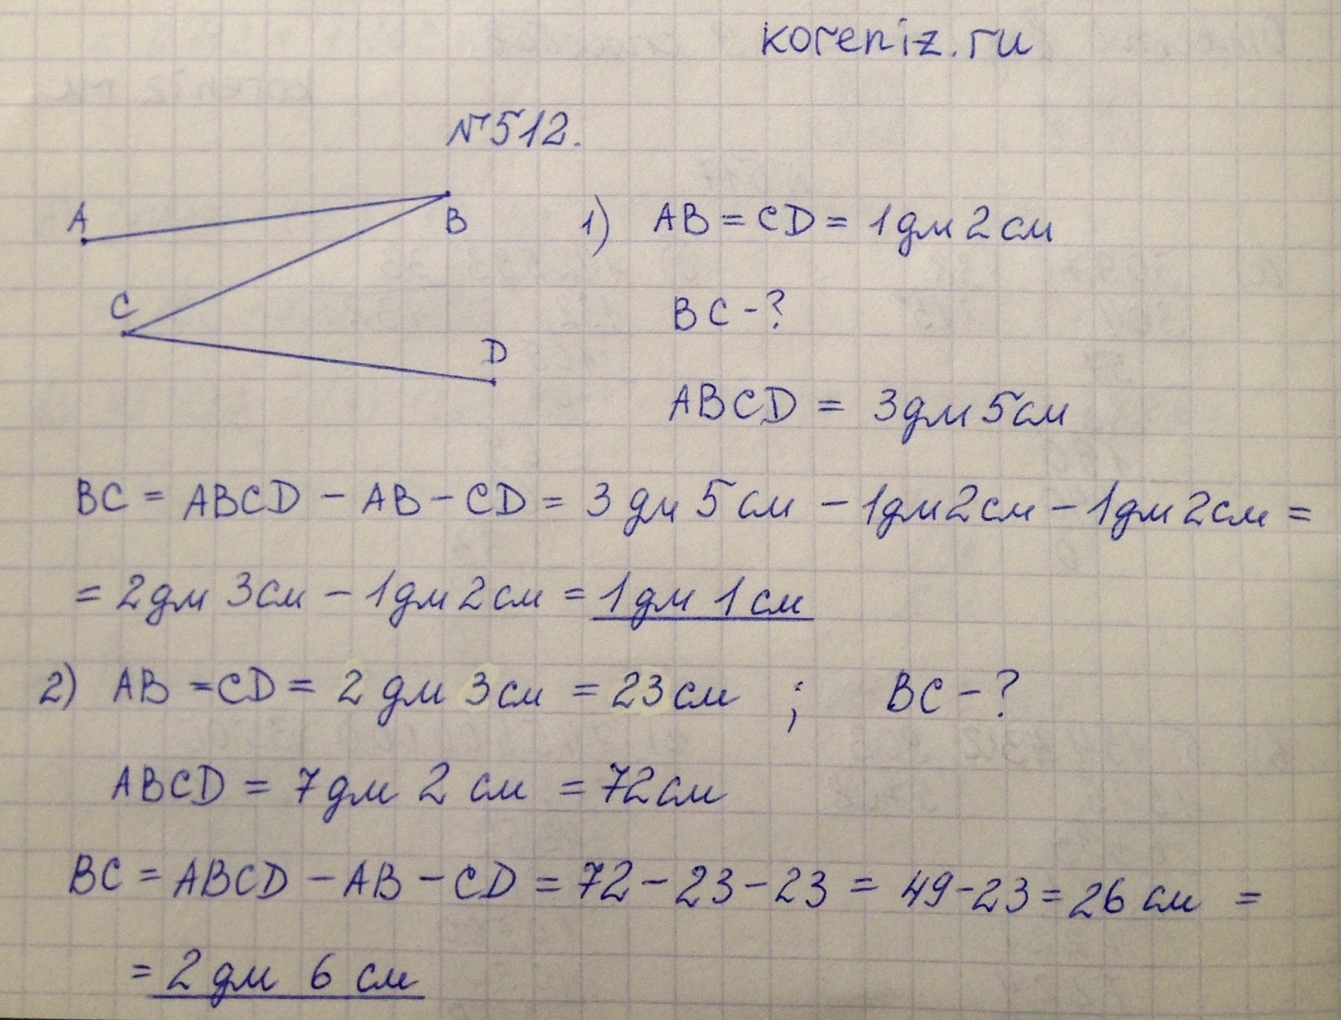 koreniz.ru
№512.
A
B
C
D
1) AB = CD = 1 дм 2 см
BC - ?
ABCD = 3 дм 5 см
BC = ABCD - AB - CD = 3 дм 5 см - 1 дм 2 см - 1 дм 2 см =
= 2 дм 3 см - 1 дм 2 см = 1 дм 1 см
2) AB = CD = 2 дм 3 см = 23 см ; BC - ?
ABCD = 7 дм 2 см = 72 см
BC = ABCD - AB - CD = 72 - 23 - 23 = 49 - 23 = 26 см =
= 2 дм 6 см